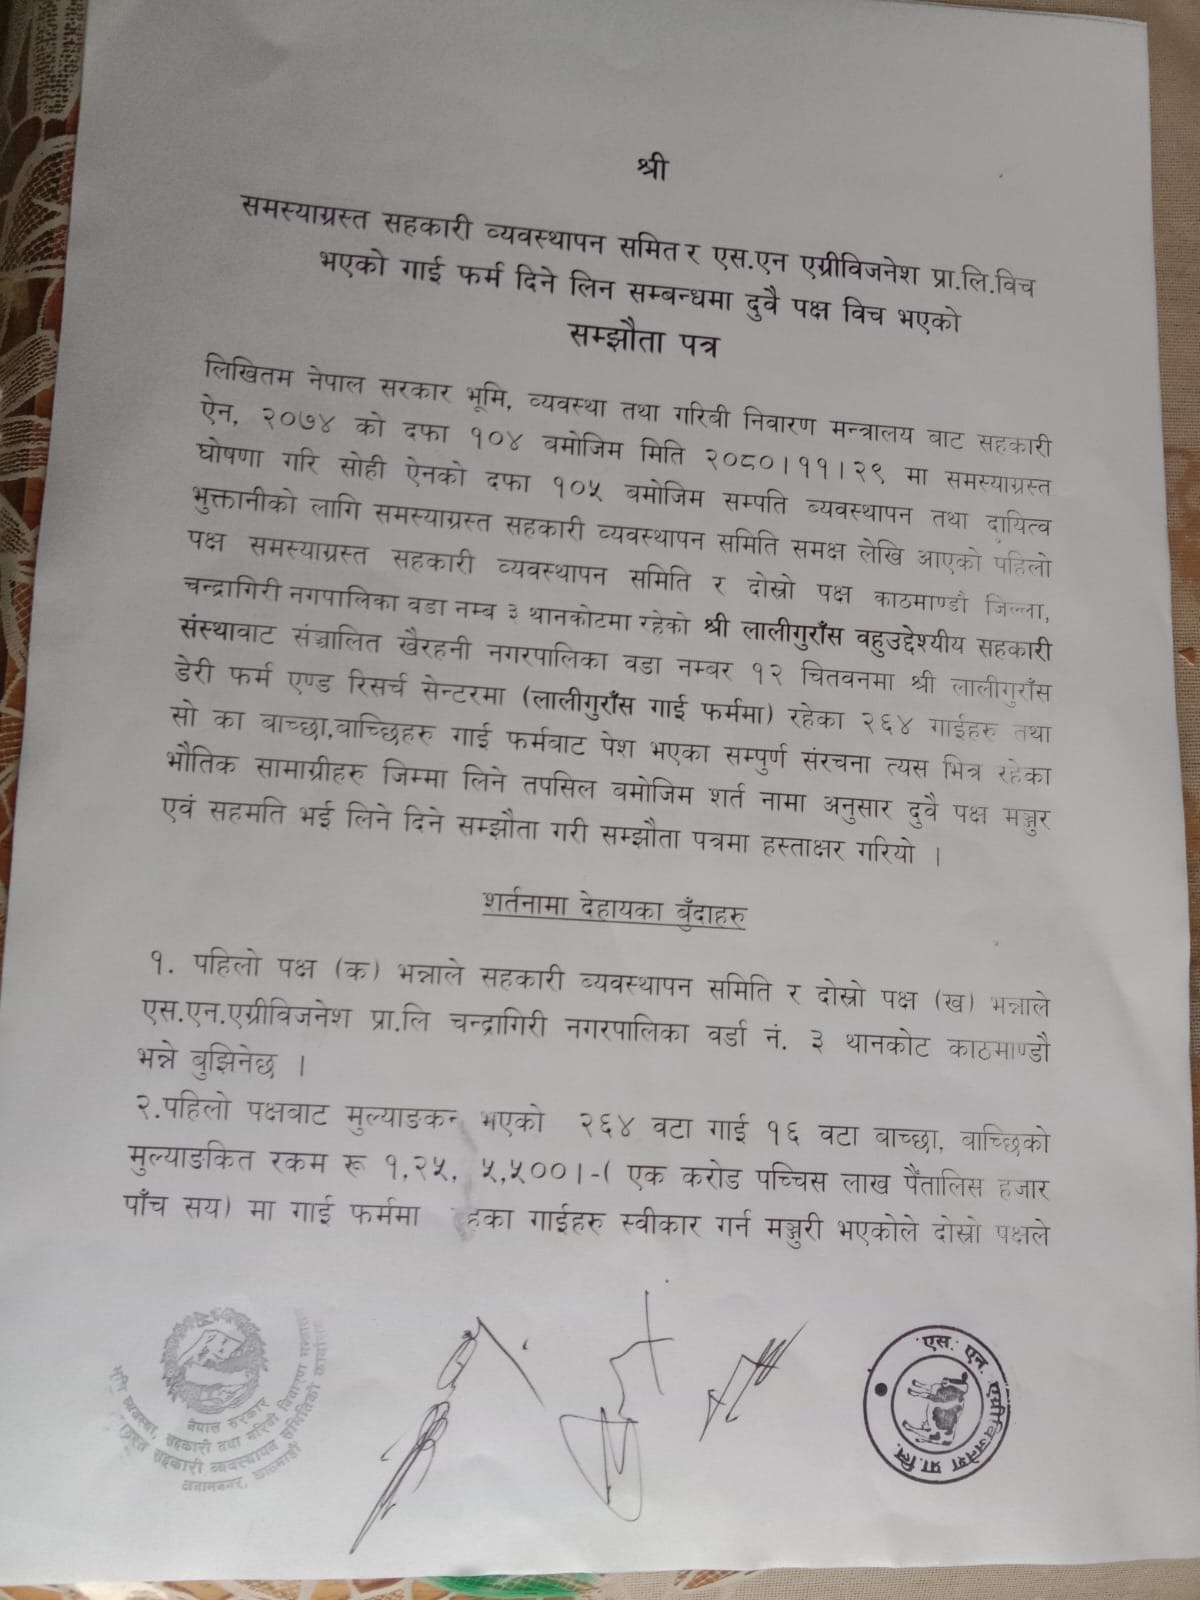 श्री
समस्याग्रस्त सहकारी व्यवस्थापन समित र एस.एन एग्रीविजनेश प्रा.लि.विच
भएको गाई फर्म दिने लिन सम्बन्धमा दुवै पक्ष विच भएको
सम्झौता पत्र
लिखितम नेपाल सरकार भूमि, व्यवस्था तथा गरिवी निवारण मन्त्रालय बाट सहकारी
ऐन, २०७४ को दफा १०४ बमोजिम मिति २०८०।११।२९ मा समस्याग्रस्त
घोषणा गरि सोही ऐनको दफा १०५ बमोजिम सम्पति ब्यवस्थापन तथा दायित्व
भुक्तानीको लागि समस्याग्रस्त सहकारी व्यवस्थापन समिति समक्ष लेखि आएको पहिलो
पक्ष समस्याग्रस्त सहकारी व्यवस्थापन समिति र दोस्रो पक्ष काठमाण्डौ जिल्ला,
चन्द्रागिरी नगपालिका वडा नम्ब ३ थानकोटमा रहेको श्री लालीगुराँस वहुउद्देश्यीय सहकारी
संस्थावाट संञ्चालित खैरहनी नगरपालिका वडा नम्बर १२ चितवनमा श्री लालीगुराँस
डेरी फर्म एण्ड रिसर्च सेन्टरमा (लालीगुराँस गाई फर्ममा) रहेका २६४ गाईहरु तथा
सो का बाच्छा,वाच्छिहरु गाई फर्मबाट पेश भएका सम्पुर्ण संरचना त्यस भित्र रहेका
भौतिक सामाग्रीहरु जिम्मा लिने तपसिल बमोजिम शर्त नामा अनुसार दुवै पक्ष मञ्जुर
एवं सहमति भई लिने दिने सम्झौता गरी सम्झौता पत्रमा हस्ताक्षर गरियो ।
शर्तनामा देहायका बुँदाहरु
१. पहिलो पक्ष (क) भन्नाले सहकारी व्यवस्थापन समिति र दोस्रो पक्ष (ख) भन्नाले
एस.एन.एग्रीविजनेश प्रा.लि चन्द्रागिरी नगरपालिका वर्डा नं. ३ थानकोट काठमाण्डौ
भन्ने बुझिनेछ ।
२.पहिलो पक्षबाट मुल्याङकन भएको २६४ वटा गाई १६ वटा बाच्छा, बाच्छिको
मुल्याङकित रकम रू १,२५, ५,५००।-( एक करोड पच्चिस लाख पैंतालिस हजार
पाँच सय) मा गाई फर्ममा हका गाईहरु स्वीकार गर्न मञ्जुरी भएकोले दोस्रो पक्षले
नेपाल सरकार
भूमि व्यवस्था, सहकारी तथा गरिवी निवारण
ग्रस्त सहकारी व्यवस्थापन समितिको कार्यालय
काठमाडौं
एस. एन. एग्रीविजनेश प्रा.लि.